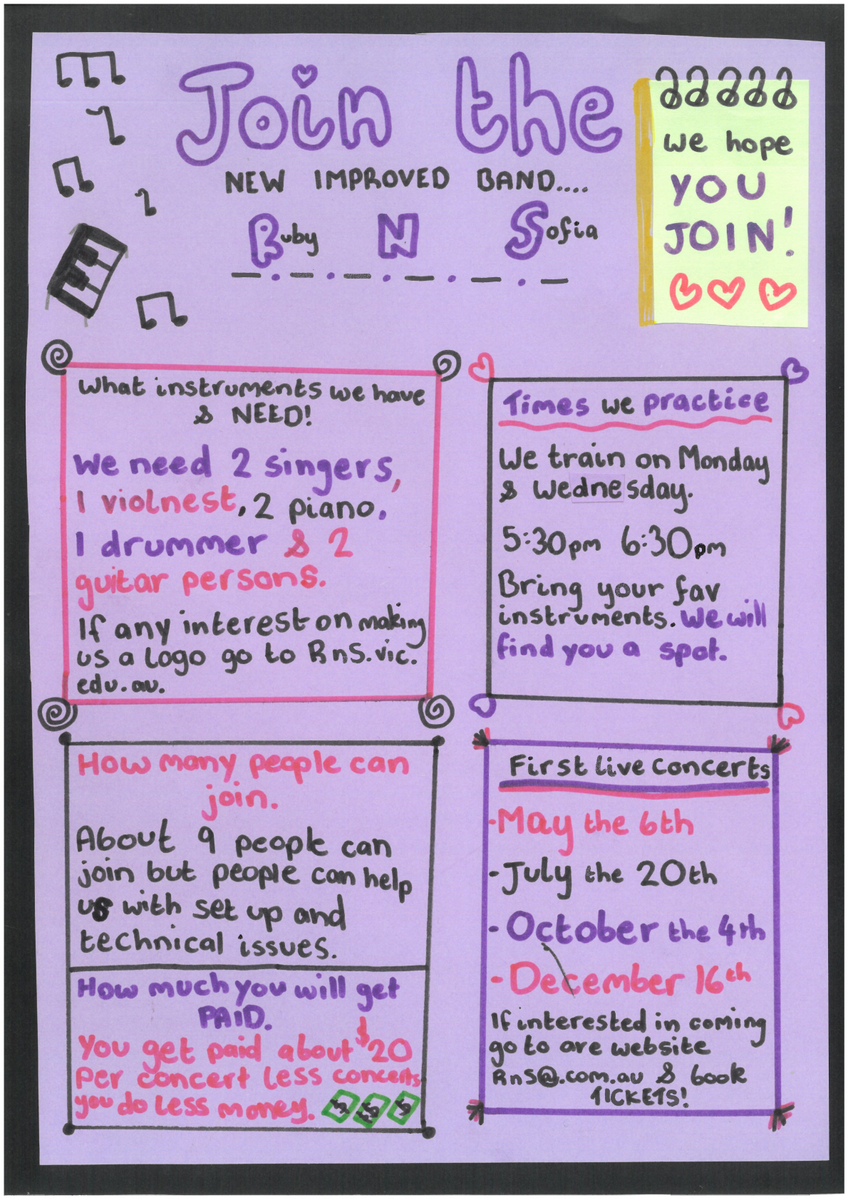 Join the
NEW IMPROVED BAND....
Ruby N Sofia
we hope
YOU
JOIN!
What instruments we have
& NEED!
We need 2 singers,
1 violnest, 2 piano,
1 drummer & 2
guitar persons.
If any interest on making
us a Logo go to RnS.vic.
edu.au.
Times we practice
We train on Monday
& Wednesday.
5:30pm 6:30pm
Bring your fav
instruments. We will
find you a spot.
How many people can
join.
About 9 people can
join but people can help
us with set up and
technical issues.
How much you will get
PAID.
You get paid about $20
per concert less concerts
you do less money.
First Live Concerts
-May the 6th
-July the 20th
-October the 4th
-December 16th
If interested in coming
go to are website
RnS@.com.au & book
TICKETS!